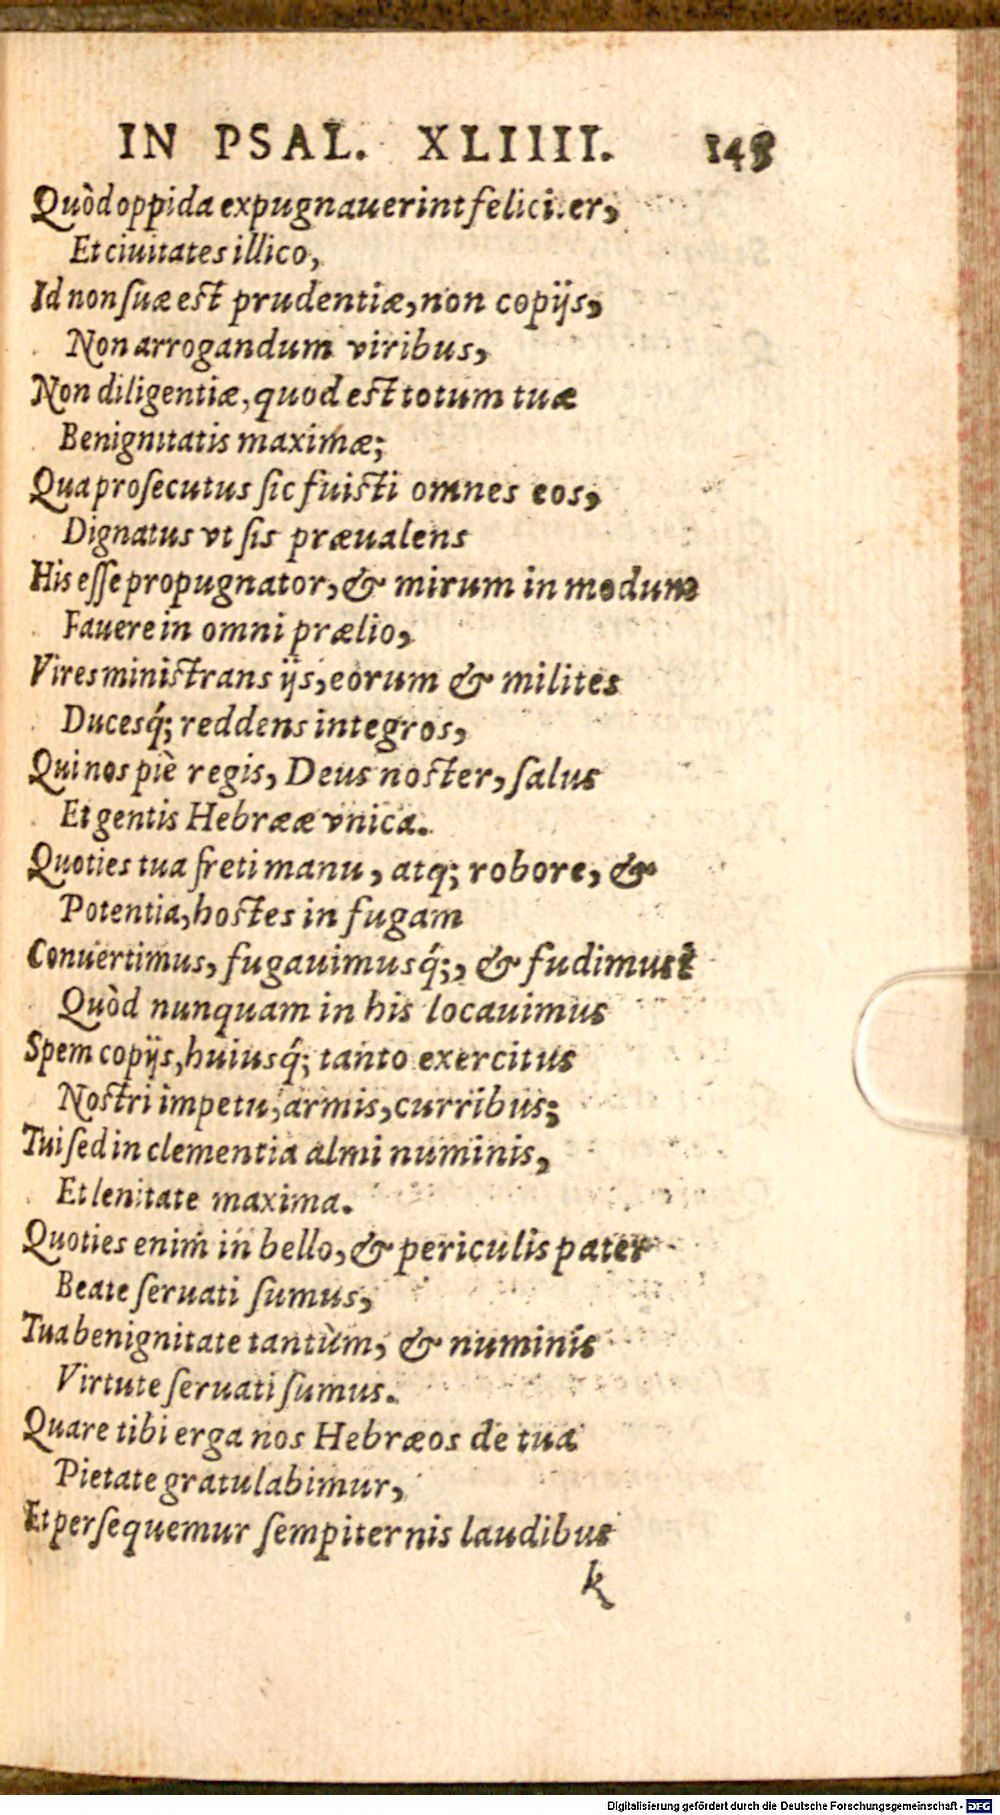 IN PSAL. XLIIII. 145
Quòd oppida expugnauerint feliciter,
Et ciuitates illico,
Id non ſuæ eſt prudentiæ, non copijs,
Non arrogandum viribus,
Non diligentiæ, quod eſt totum tuæ
Benignitatis maximæ;
Qua proſecutus ſic fuiſti omnes eos,
Dignatus vt ſis præualens
His eſſe propugnator, & mirum in modum
Fauere in omni prælio,
Vires miniſtrans ijs, eorum & milites
Duceſq́; reddens integros,
Qui nos piè regis, Deus noſter, ſalus
Et gentis Hebrææ vnica.
Quoties tua freti manu, atq; robore, &
Potentia, hoſtes in fugam
Conuertimus, fugauimusq́;, & fudimus:
Quòd nunquam in his locauimus
Spem copijs, huiusq́; tanto exercitus
Noſtri impetu, armis, curribus;
Tui ſed in clementia almi numinis,
Et lenitate maxima.
Quoties enim in bello, & periculis pater
Beate ſeruati ſumus,
Tua benignitate tantùm, & numinis
Virtute ſeruati ſumus.
Quare tibi erga nos Hebræos de tua
Pietate gratulabimur,
Et perſequemur ſempiternis laudibus
k
Digitalisierung gefördert durch die Deutsche Forschungsgemeinschaft - DFG